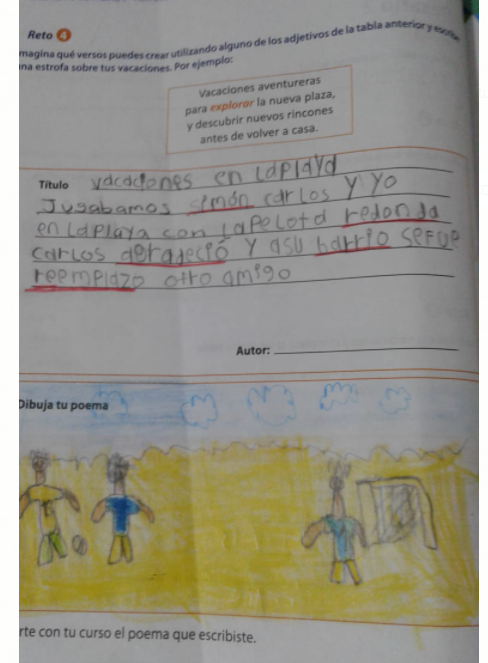 Reto 4
magina qué versos puedes crear utilizando alguno de los adjetivos de la tabla anterior y
na estrofa sobre tus vacaciones. Por ejemplo:
Vacaciones aventureras
para explorar la nueva plaza,
y descubrir nuevos rincones
antes de volver a casa.
Título vacaciones en Laplaya
Jugabamos simón carlos y yo
en Laplaya con Lapelota redonda
carLos agradeció y asu barrio sefue
reemplazo otro amigo
Autor:
Dibuja tu poema
rte con tu curso el poema que escribiste.